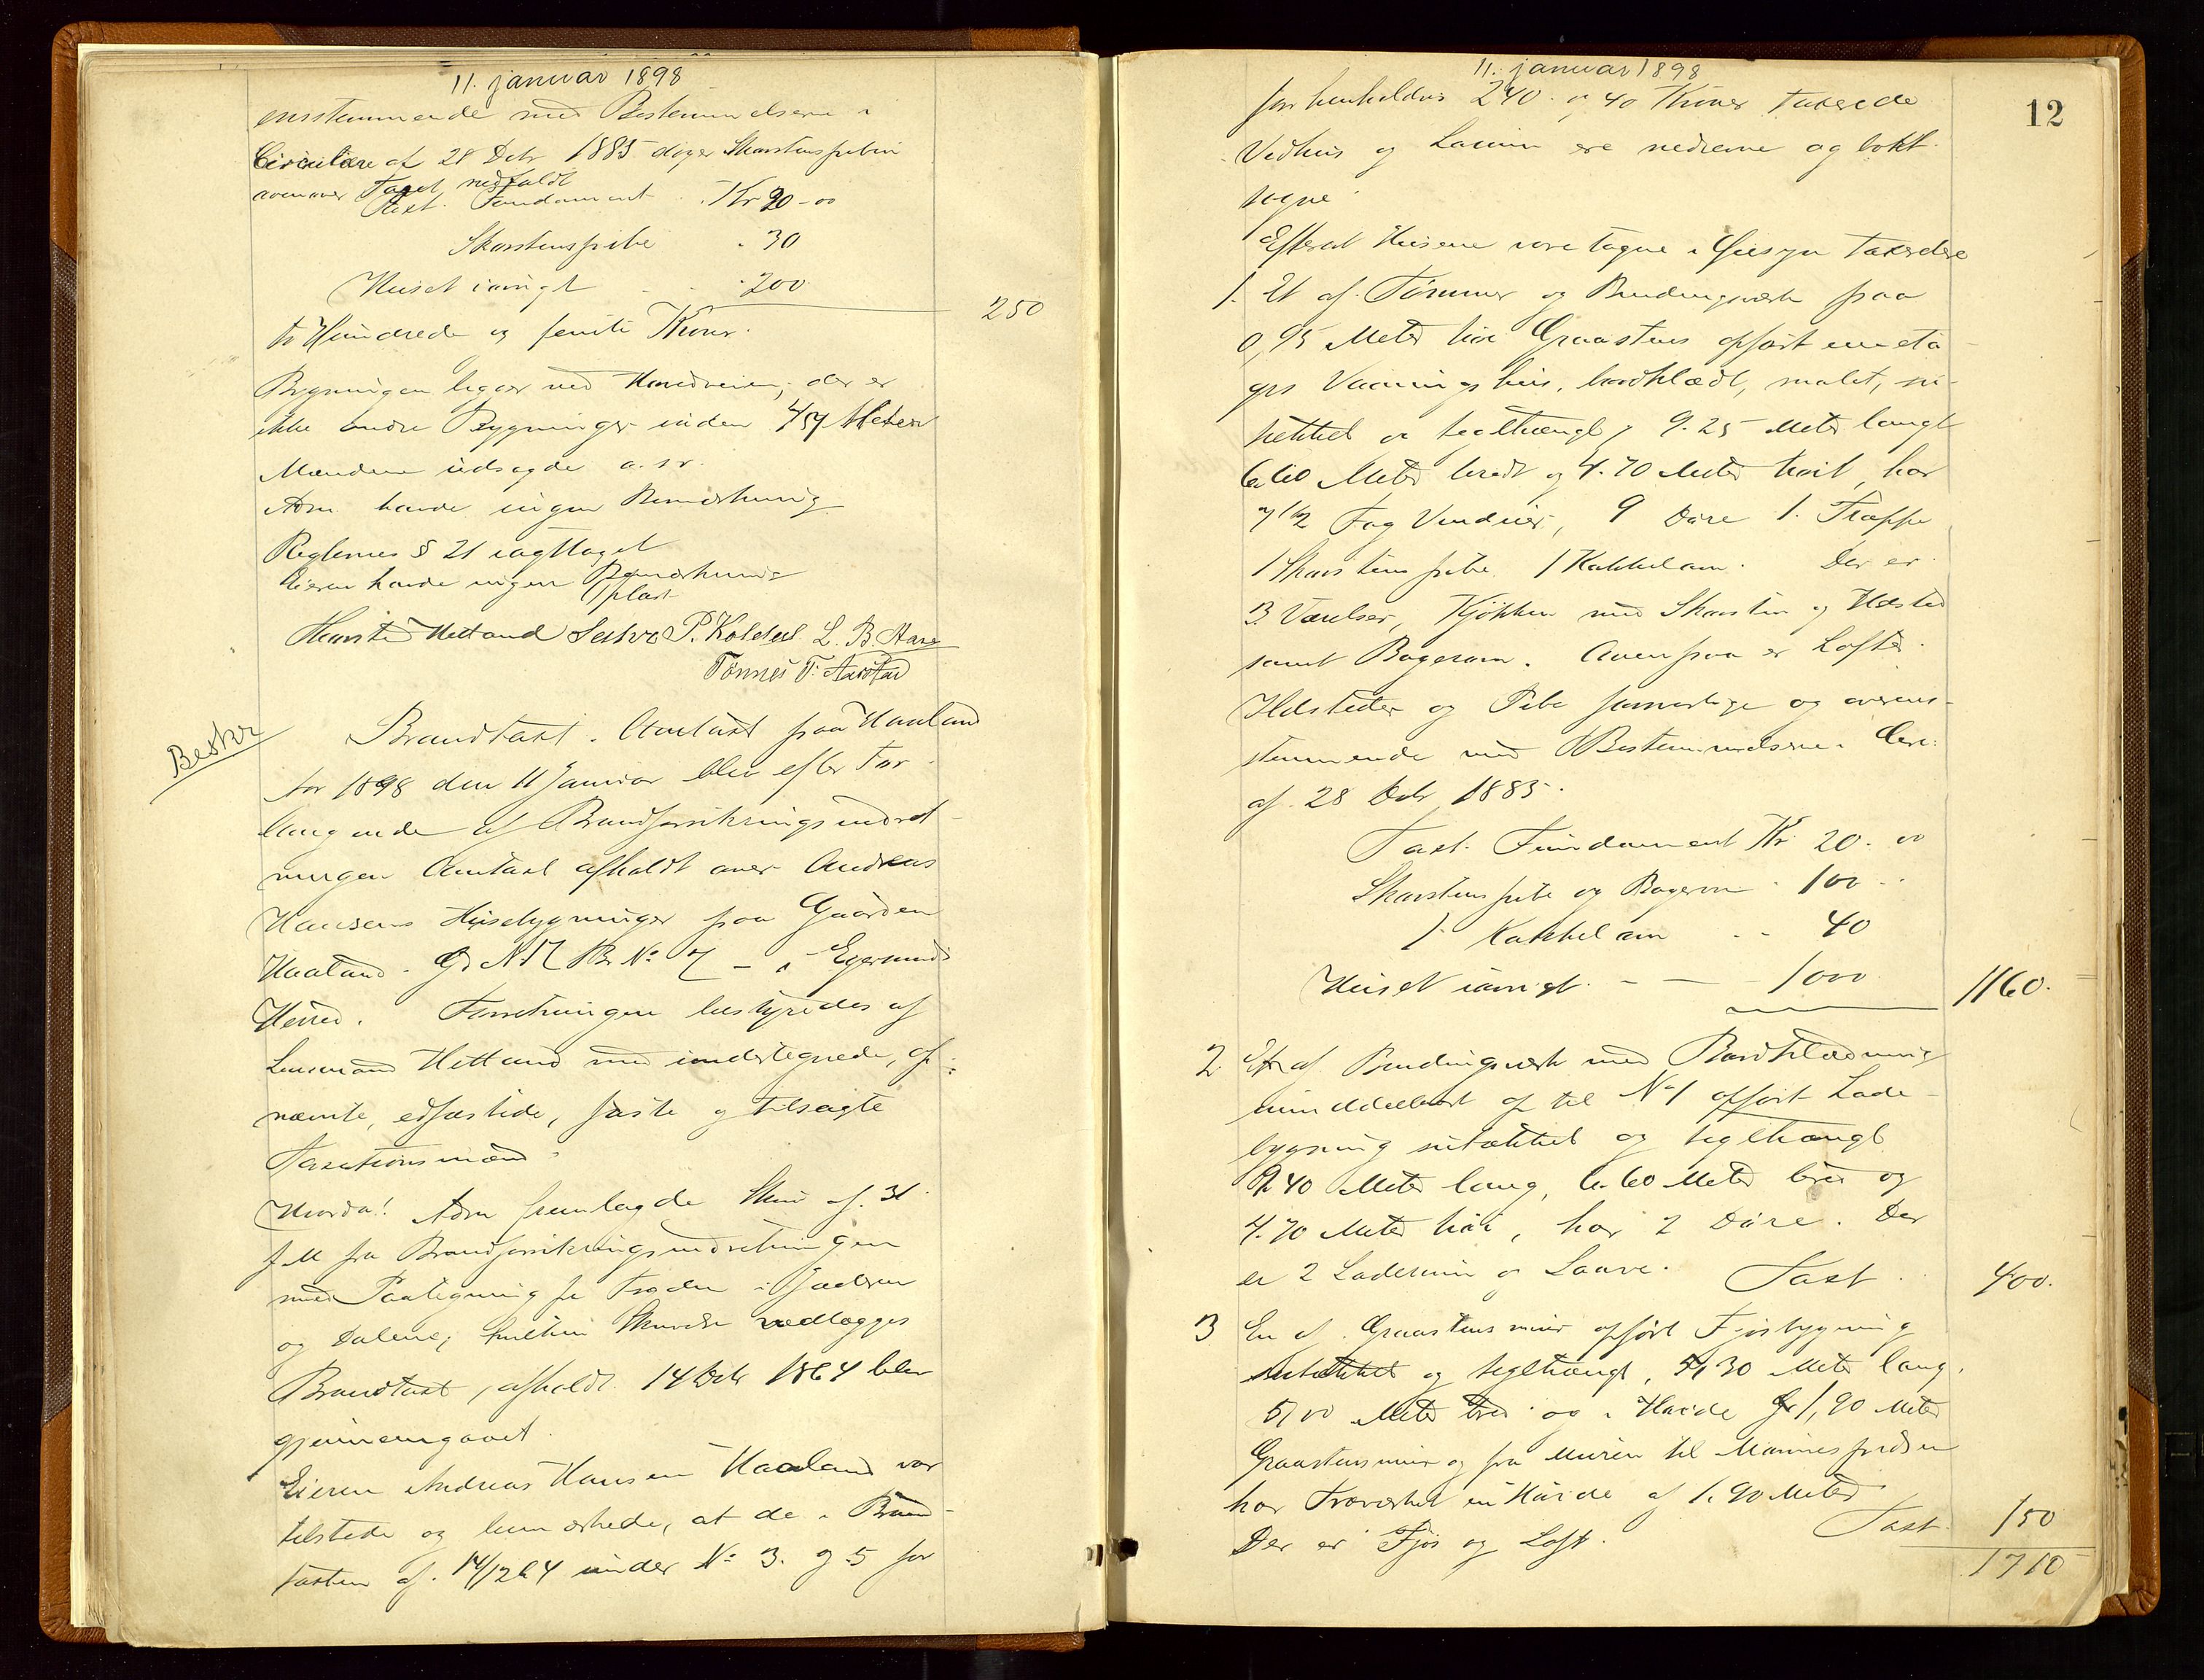 11. januar 1898
ensstemmende med Bestemmelserne i
Circulære af 28 Debr 1885 dog er Skorstenspiben
ovenover Taget nedfaldt
Taxt. Fundament Kr 20-00
Skorstenspibe " 30
Huset iøvrigt - - " 200
250
to Hundrede og femti Kroner.
Bygningen ligger ved Hovedveien; der er
ikke andre Bygninger inden 47 Meter
Mændene udsagde a. s. v.
Adm. havde ingen Bemærkning
Reglernes § 21 iagttaget
Eieren havde ingen Bemærkning
Oplæst
Hetland P. Koldal L. B. Aase
Tønnes T. Aarstad
Beskr
Brandtaxt. Omtaxt paa Haaland
Aar 1898 den 11 Januar blev efter For-
langende af Brandforsikringsindret-
ningen Omtaxt afholdt over Andreas
Hansens Husebygninger paa Gaarden
Haaland. Gr N 17 Br. No 7 - i Egersunds
Herred. Forretningen bestyredes af
Lensmand Hetland med undertegnede, op-
nævnte, edfæstede, faste og tilsagte
Taxationsmænd:
Hvorda! Adm fremlagde Skriv af. 31
f. M fra Brandforsikringsindretningen
med Paategning fra Fogden i Jæderen
og Dalene; hvilken Skrivelse vedlægges
Brandtaxt, afholdt 14 Debr 1864 blev
gjennemgaaet.
Eieren Andreas Hansen Haaland var
tilstede og bemærkede, at de i Brand-
taxten af. 14/12 64 under No 3. og 5 for
11. januar 1898
12
for henholdsvis 240 og 40 Kroner taxerede
Vedhus og ere nedrevne og bort-
tagne.
Efterat Husene vare tagne i Øiesyn taxeredes
1. Et af Tømmer og Bindingsværk paa
0,95 Meter høi Graastens opført eneta-
ges Vaaningshus, bordklædt, malet, næ-
vertækket og teglhængt, 9.25 Meter langt
6.60 Meter bredt og 4.70 Meter høit, har
7 1/2 Fag Vinduer, 9 Døre 1. Trappe
1 Skorstenspibe 1 Kakkelovn. Der er
3. Værelser, Kjøkken med Skorsten og Ildsted
samt Bagerovn. Ovenpaa er Lofter.
Ildsteder og Pibe forsvarlige og overens-
stemmende med Bestemmelserne i Circ.
af. 28 Debr 1885.
Taxt. Fundament Kr 20. 00
Skorstenspibe og Bagerovn " 100 "
1 Kakkelovn - - 40
Huset iøvrigt. - - 1000
1160.
2. En af Bindingsværk med Bordklædning
umiddelbart op til No 1 opført Lade-
bygning nævertækket og teglhængt
9.40 Meter lang, 6.60 Meter bred og
4.70 Meter høi, har 2 Døre. Der
er 2 Laderum og Laave. Taxt. 400.
3 En af Graastensmur opført Fjøsbygning
nævertækket og teglhængt, 5,30 Meter lang.
5,00 Meter bred og i Høide 1,90 Meter
Graastensmur og fra Muren til
har Træværket en Høide af 1.90 Meter
Der er Fjøs og Loft. Taxt. 150
1710